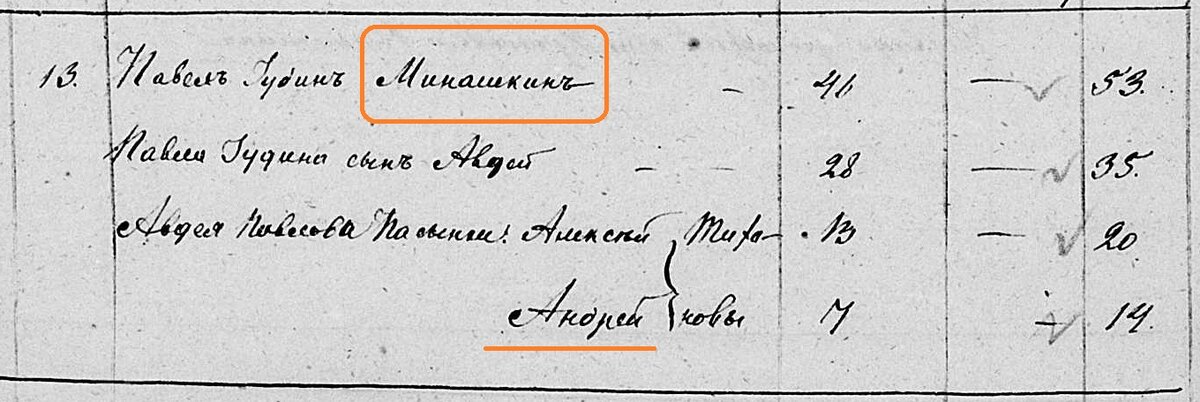 13. Павелъ Гудинъ Минашкинъ - 41 — 53.
Павла Гудина сынъ Авдей - — 28 — 35.
Авдея Павлова Пасынки: Алексѣй } Тиха- 13 — 20
Андрей } новы 7 - 14.